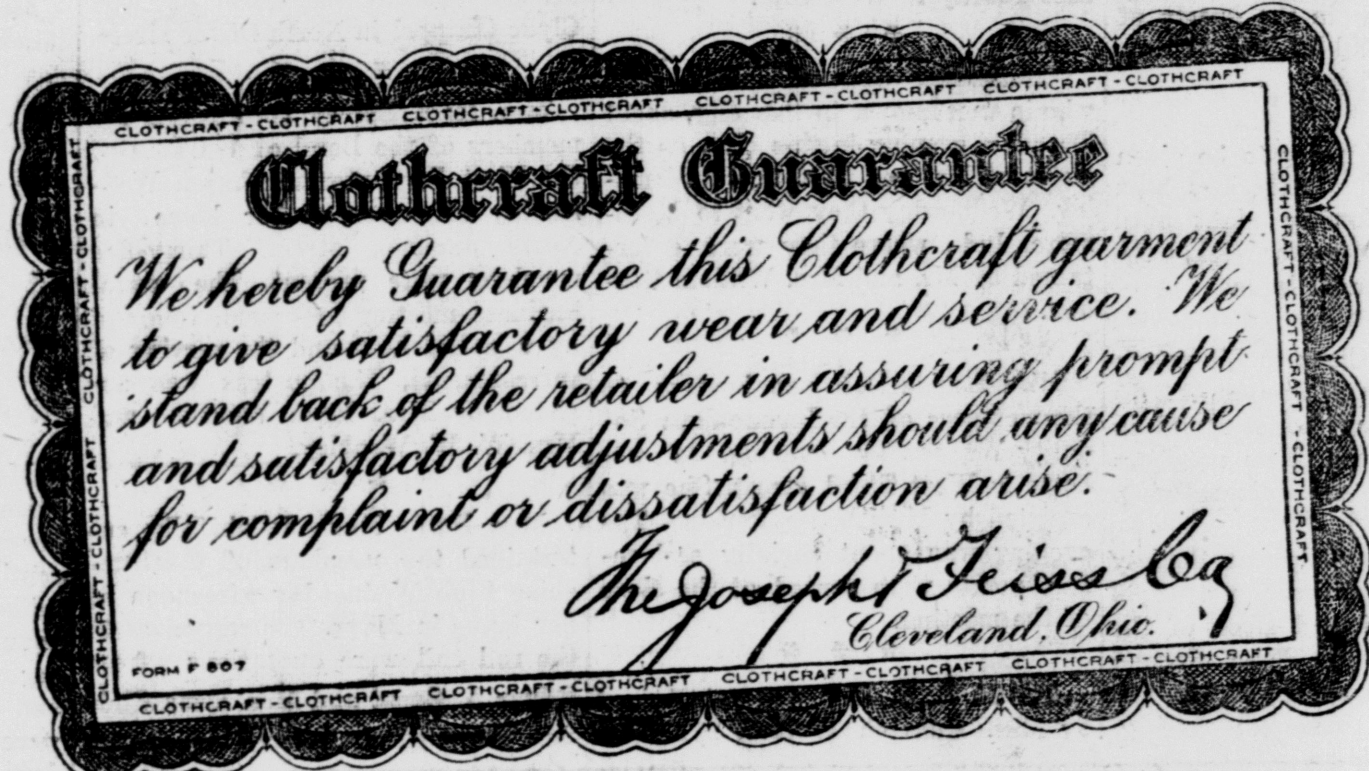 CLOTHCRAFT - CLOTHCRAFT CLOTHCRAFT - CLOTHCRAFT CLOTHCRAFT - CLOTHCRAFT CLOTHCRAFT - CLOTHCRAFT
Clothcraft Guarantee
We hereby Guarantee this Clothcraft garment
to give satisfactory wear and service. We
stand back of the retailer in assuring prompt
and satisfactory adjustments should any cause
for complaint or dissatisfaction arise.
The Joseph & Feiss Co
Cleveland, Ohio.
FORM F 807
CLOTHCRAFT - CLOTHCRAFT CLOTHCRAFT - CLOTHCRAFT CLOTHCRAFT - CLOTHCRAFT CLOTHCRAFT - CLOTHCRAFT
CLOTHCRAFT - CLOTHCRAFT CLOTHCRAFT - CLOTHCRAFT
CLOTHCRAFT - CLOTHCRAFT - CLOTHCRAFT